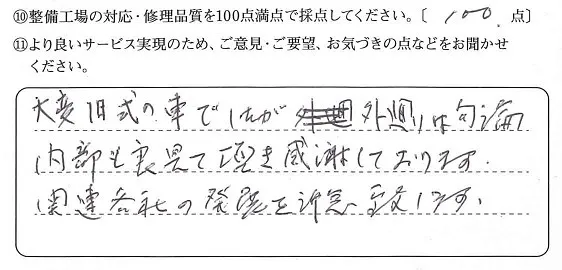 ⑩整備工場の対応・修理品質を100点満点で採点してください。〔 100 点〕
⑪より良いサービス実現のため、ご意見・ご要望、お気づきの点などをお聞かせ
ください。
大変旧式の車でしたが 外廻りは勿論
内部も良く見て頂き感謝しております.
関連各社の発展を祈念致します.